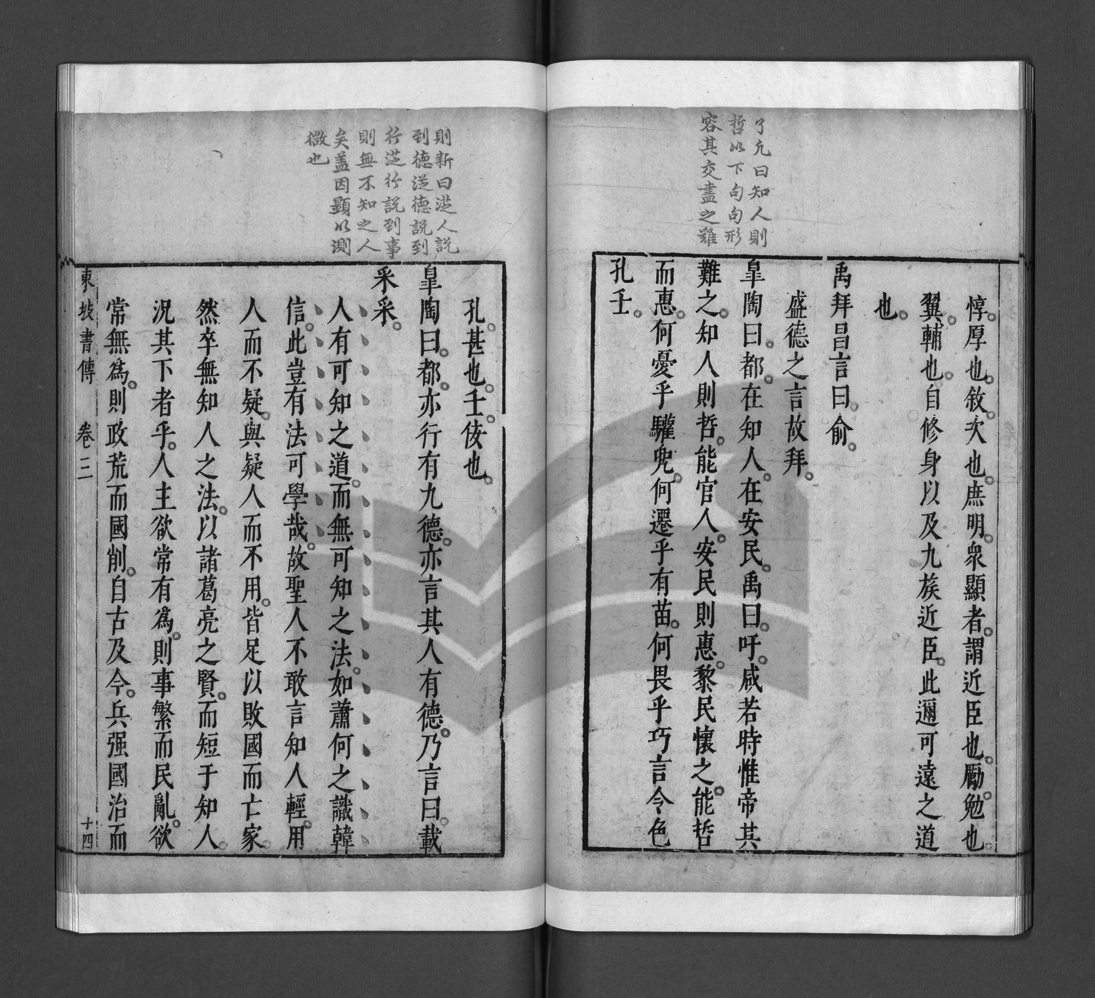 了凡曰知人則
哲以下句句形
容其交盡之難
惇厚也敘次也庶明衆顯者謂近臣也勵勉也
翼輔也自修身以及九族近臣此邇可遠之道
也
禹拜昌言曰俞
盛德之言故拜
皐陶曰都在知人在安民禹曰吁咸若時惟帝其
難之知人則哲能官人安民則惠黎民懷之能哲
而惠何憂乎驩兜何遷乎有苗何畏乎巧言令色
孔壬
則新曰從人說
到德從德說到
行從行說到事
則無不知之人
矣盖因顯以測
微也
孔甚也壬佞也
皐陶曰都亦行有九德亦言其人有德乃言曰載
采采
人有可知之道而無可知之法如蕭何之識韓
信此豈有法可學哉故聖人不敢言知人輕用
人而不疑與疑人而不用皆足以敗國而亡家
然卒無知人之法以諸葛亮之賢而短于知人
況其下者乎人主欲常有爲則事繁而民亂欲
常無爲則政荒而國削自古及今兵强國治而
東坡書傳 卷三 十四